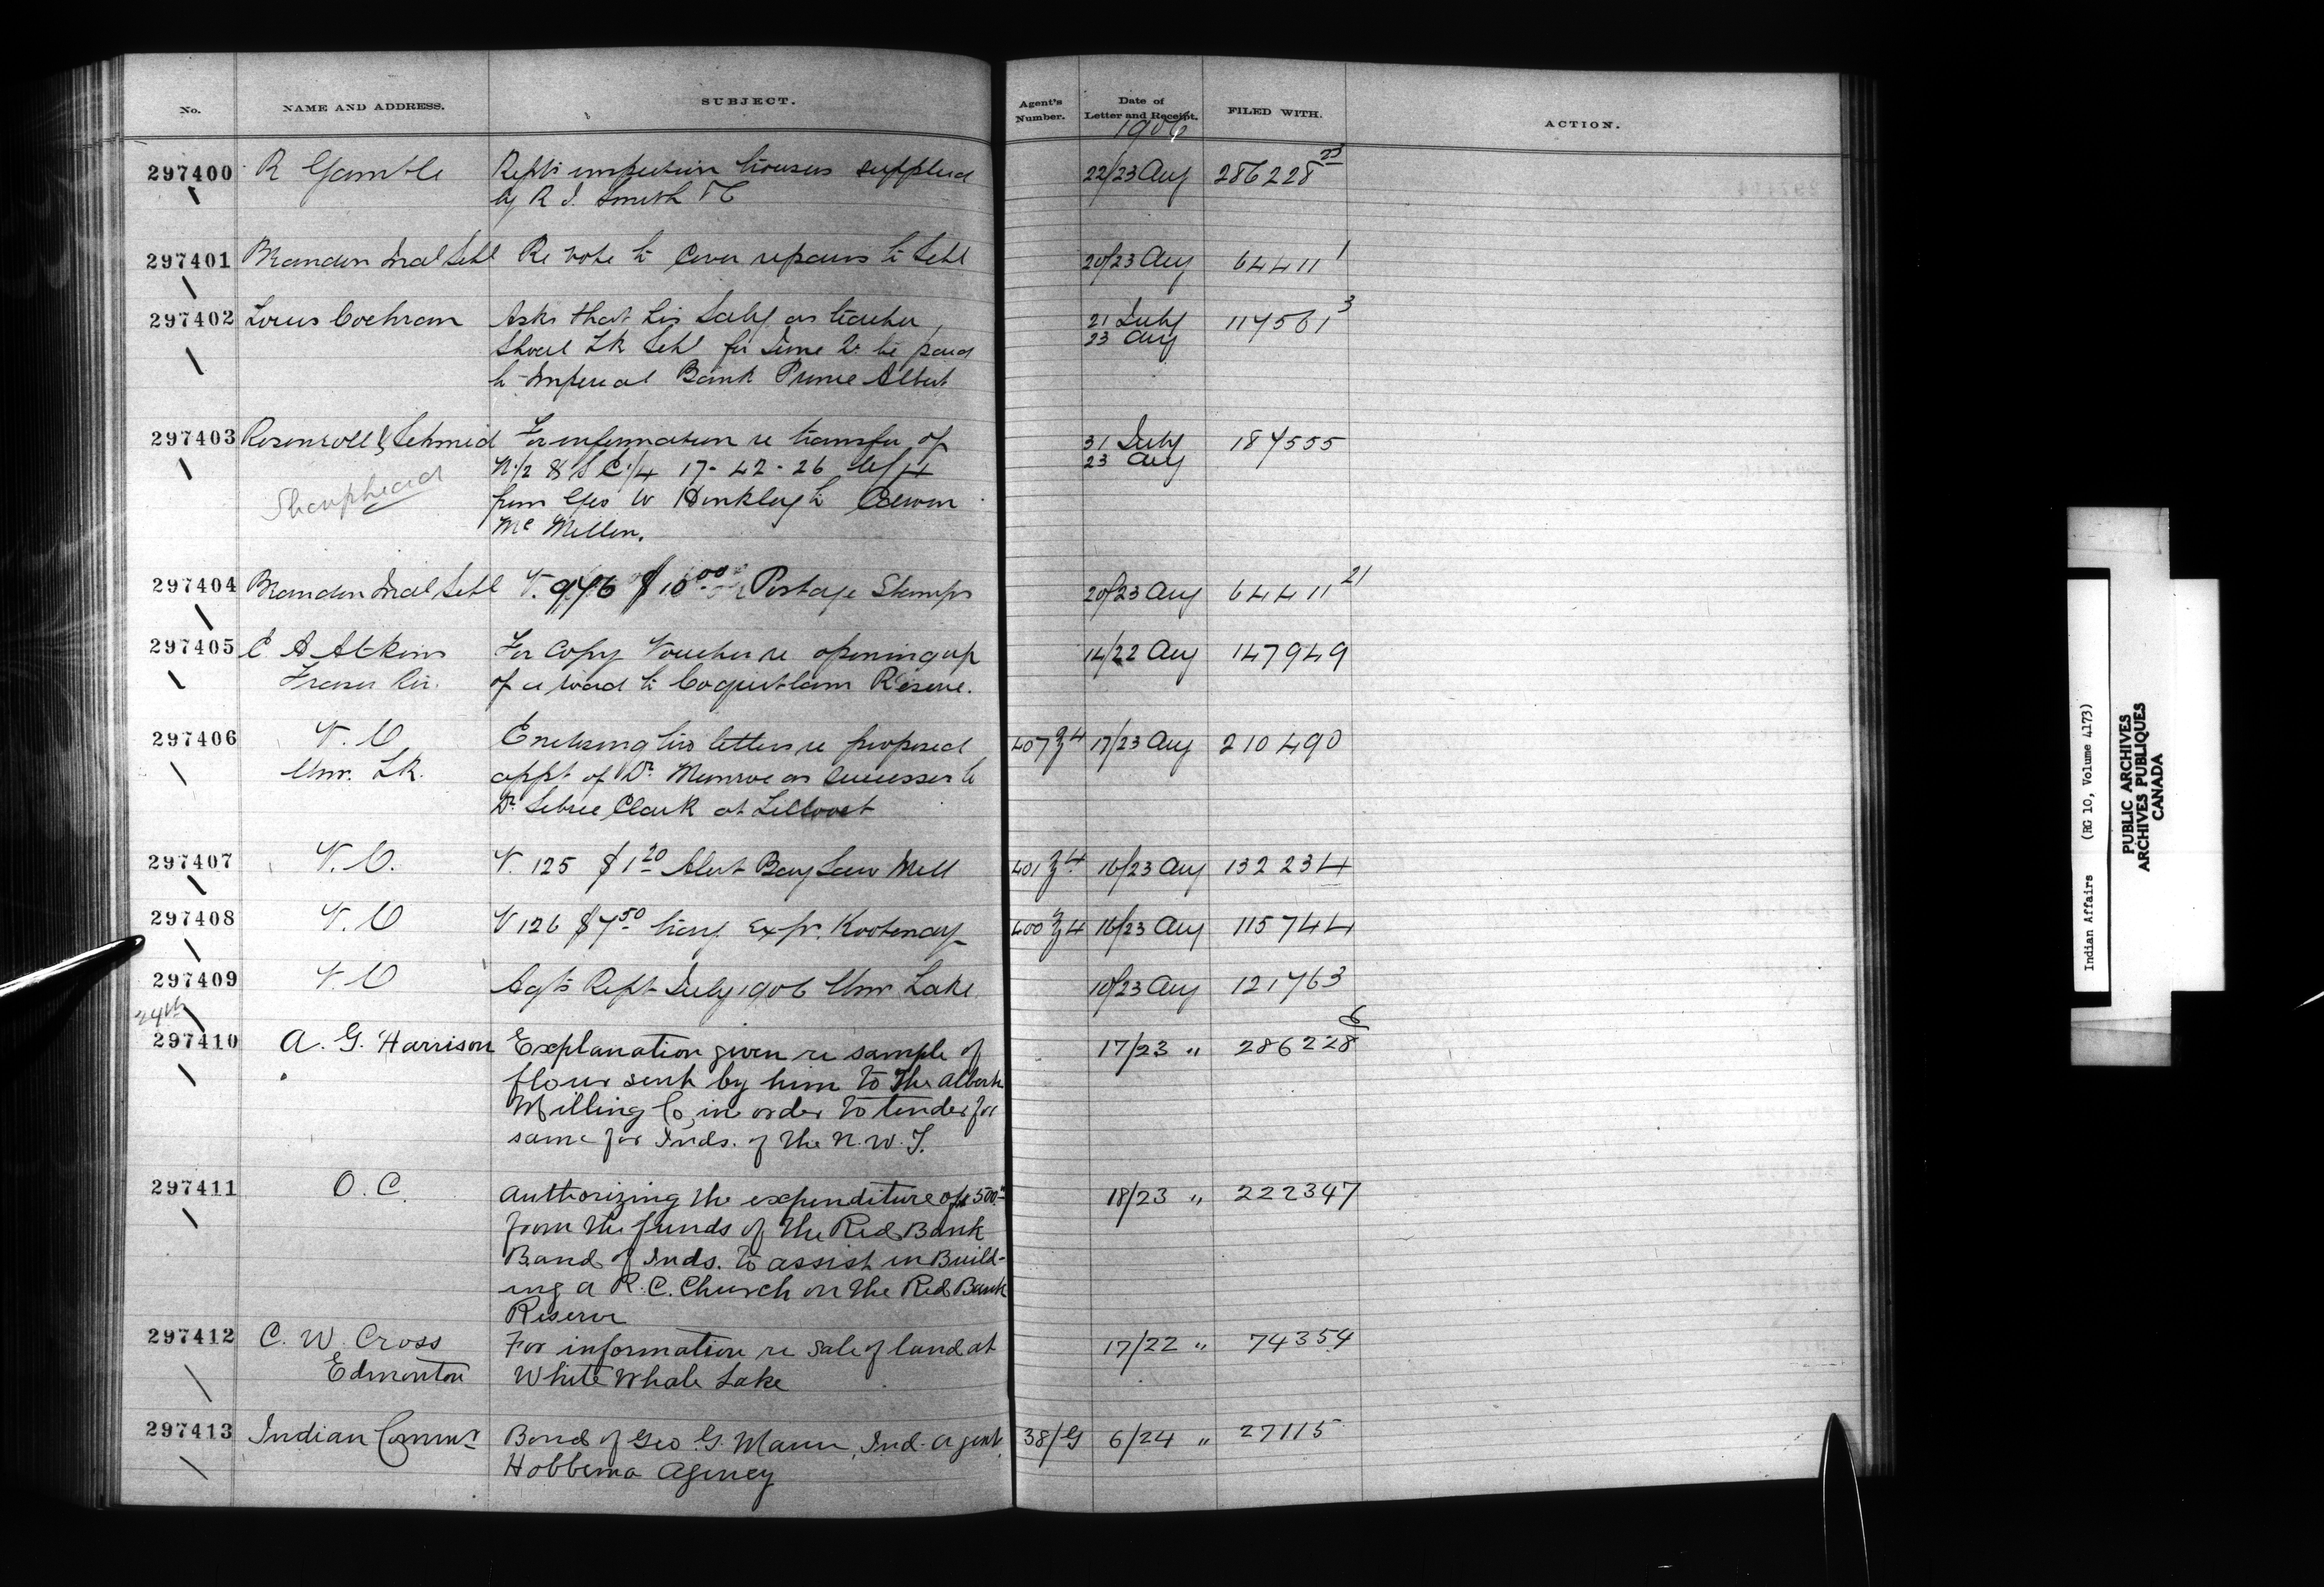 No. NAME AND ADDRESS. SUBJECT. Agent's Number. Date of Letter and Receipt. FILED WITH. ACTION.
1906
297400 R Gamble Rept inspection trousers supplied 22/23 Aug 286228 23
by R J. Smith
297401 Brandon Indl Schl Re vote to cover repairs to Schl 20/23 Aug 64411 1
297402 Louis Cochran Asks that his Saly as teacher 21 July 117561 3
Shoal Lk Schl for June Qr be paid 23 Aug
to Imperial Bank Prince Albert
297403 Rosenroll & Schmid For information re transfer of 31 July 187555
N 1/2 & S E 1/4 17-42-26 W/4 23 Aug
Sharphead from Geo W Hinkley to
Mc Millen.
297404 Brandon Indl Schl V. 976 $10 00 Postage Stamps 20/23 Aug 64411 21
297405 E A Atkins For copy Voucher re opening up 14/22 Aug 147949
Fraser Riv. of a road to Coquitlam Reserve.
297406 V. O Enclosing two letters re proposed 407 Z 4 17/23 Aug 210490
Wms. Lk. appt of Dr. Munroe as successor to
Dr. Sebree Clark at Lillooet
297407 V. O. V. 125 $1 20 Alert Bay Saw Mill 401 Z 4 16/23 Aug 132234
297408 V. O V 126 $7 50 travg Exp. Kootenay 400 Z 4 16/23 Aug 115744
297409 V. O Agts Rept July 1906 Wms Lake 10/23 Aug 121763
24th
297410 A. G. Harrison Explanation given re sample of 17/23 " 286228 6
flour sent by him to the Alberta
Milling Co, in order to tender for
same for Inds. of the N. W. T.
297411 O. C. Authorizing the expenditure of $500 18/23 " 222347
from the funds of the Red Bank
Band of Inds. to assist in Build-
ing a R. C. Church on the Red Bank
Reserve
297412 C. W. Cross For information re sale of land at 17/22 " 74354
Edmonton White Whale Lake
297413 Indian Commr Bond of Geo. G. Mann, Ind. Agent, 38/G 6/24 " 27115
Hobbema Agency
Indian Affairs (RG 10, Volume 4173)
PUBLIC ARCHIVES
ARCHIVES PUBLIQUES
CANADA